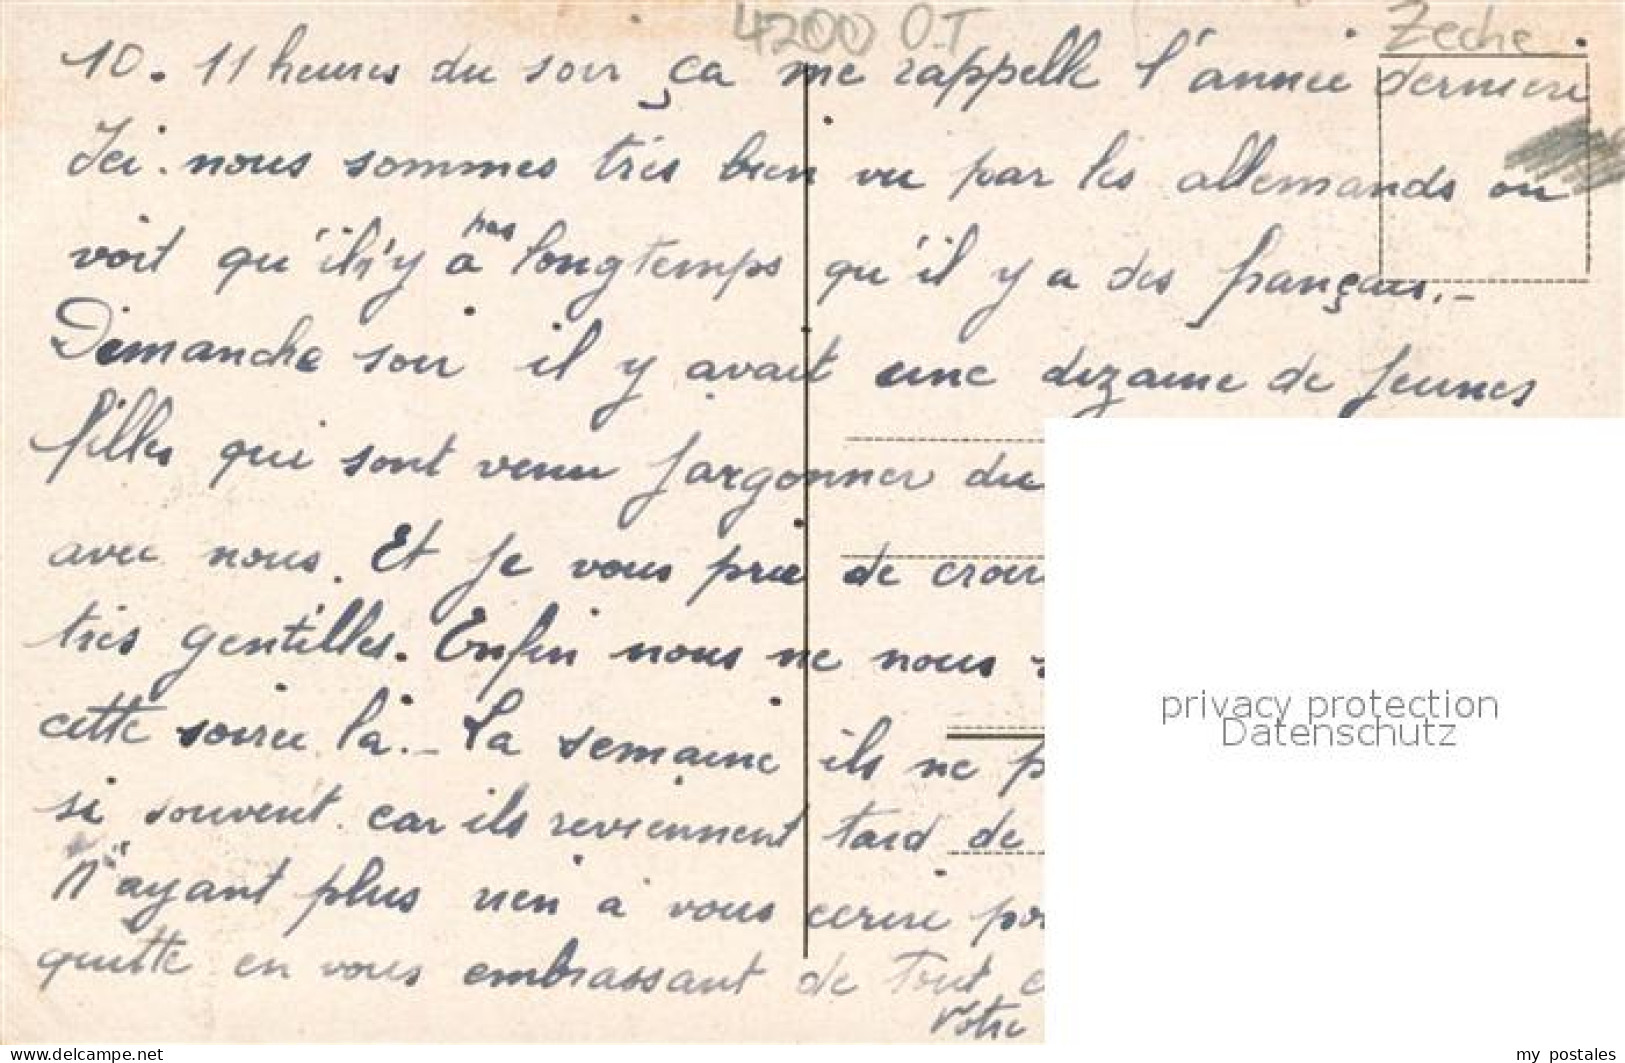 4200 O.T Zeche
10. 11 heures du soir ça me rappelle l'année derniere
Ici. nous sommes très bien vu par les allemands on
voit qu'il n'y a pas longtemps qu'il y a des français.-
Dimanche soir il y avait une dizaine de jeunes
filles qui sont venu jargonner du
avec nous. Et je vous prie de croir
très gentilles. Enfin nous ne nous
cette soirée là.- La semaine ils ne p
si souvent car ils reviennent tard de
N'ayant plus rien à vous ecrire po
quitte en vous embrassant de tout c
Votre
privacy protection
Datenschutz
www.delcampe.net
my_postales